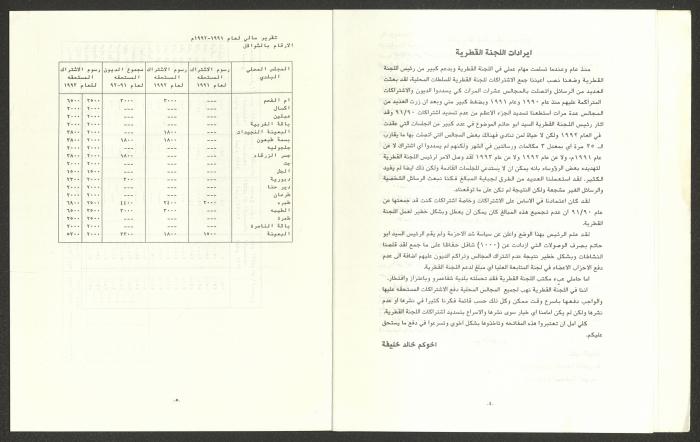 ايرادات اللجنة القطرية
منذ عام وعندما تسلمت مهام عملي في اللجنة القطرية وبدعم كبير من رئيس اللجنة
القطرية وضعنا نصب اعيننا جمع الاشتراكات للجنة القطرية للسلطات المحلية، لقد بعثت
العديد من الرسائل واتصلت بالمجالس عشرات المرات كي يسددوا الديون والاشتراكات
المتراكمة عليهم منذ عام ١٩٩٠ وعام ١٩٩١ وبضغط كبير مني وبعد ان زرت العديد من
المجالس عدة مرات استطعنا تسديد الجزء الاعظم من عدم تسديد اشتراكات ٩١/٩٠ وقد
اثار رئيس اللجنة القطرية السيد ابو حاتم الموضوع في عدد كبير من الجلسات التي عقدت
في العام ١٩٩٢ ولكن لا حياة لمن تنادي فهنالك بعض المجالس التي اتصلت بها ما يقارب
الـ ٣٥ مرة أي بمعدل ٣ مكالمات ورسالتين في الشهر ولكنهم لم يسددوا اي اشتراك لا عن
عام ١٩٩١م، ولا عن عام ١٩٩٢ ولا عن عام ١٩٩٣ لقد وصل الامر لرئيس اللجنة القطرية
لتهديده بعض الرؤساء بانه يمكن ان لا يستدعي للجلسات القادمة ولكن ذلك ايضا لم يفيد
الكثير. لقد استعملنا العديد من الطرق لجباية المبالغ فكنا نبعث الرسائل الشخصية
والرسائل الغير مشجعة ولكن النتيجة لم تكن على ما توقعناه.
لقد كان اعتمادنا في الاساس على الاشتراكات وخاصة اشتراكات كنت قد جمعتها عن
عام ٩١/٩٠ ان عدم تجميع هذه المبالغ كان يمكن ان يعطل وبشكل خطير لعمل اللجنة
القطرية.
لقد علم الرئيس بهذا الوضع واعلن عن سياسة شد الاحزمة ولم يقم الرئيس السيد ابو
حاتم بصرف الوصولات التي ازدادت عن (١٠٠٠) شاقل حفاظا على ما جمع لقد قلصنا
النشاطات وبشكل خطير نتيجة عدم اشتراك المجالس وتراكم الديون عليهم اضافة الى عدم
دفع الاحزاب الاعضاء في لجنة المتابعة العليا اي مبلغ لدعم اللجنة القطرية.
اما حاملي عبء مكتب اللجنة القطرية فقد تحملته بلدية شفاعمرو وباعتزاز وافتخار.
اننا في اللجنة القطرية نهب لجميع المجالس المحلية دفع الاشتراكات المستحقه عليها
والواجب دفعها باسرع وقت ممكن وكل ذلك حسب قائمة فكرنا كثيرا في نشرها او عدم
نشرها ولكن لم يكن امامنا اي خيار سوى نشرها والاسراع بتسديد اشتراكات اللجنة القطرية.
كلي امل ان تعتبروا هذه المفاتحه وتاخذوها بشكل اخوي وتسرعوا في دفع ما يستحق
عليكم.
اخوكم خالد خليفة
-٤-
تقرير مالي لعام ١٩٩١-١٩٩٢م
الارقام بالشواقل
المجلس المحلي رسوم الاشتراك رسوم الاشتراك مجموع الديون رسوم الاشتراك
البلدي المستحقه المستحقه المستحقه المستحقه
لعام ١٩٩١ لعام ١٩٩٢ لعام ٩١-٩٢ لعام ١٩٩٣
ام الفحم --- ٣٠٠٠ ٣٠٠٠ ٣٥٠٠ ٦٥٠٠
اكسال --- --- --- ٢٠٠٠ ٢٠٠٠
عيلين --- --- --- ٢٠٠٠ ٢٠٠٠
باقة الغربية --- --- --- ٢٠٠٠ ٢٠٠٠
البعينة النجيدات --- ١٨٠٠ --- ٢٠٠٠ ٣٨٠٠
بسمة طبعون --- --- ١٨٠٠ ٢٠٠٠ ٣٨٠٠
جلجوليه --- --- --- ٢٠٠٠ ٢٠٠٠
جسر الزرقاء --- --- ١٨٠٠ ٢٠٠٠ ٣٨٠٠
جت --- --- --- ٢٠٠٠ ٢٠٠٠
--- --- --- ١٥٠٠ ١٥٠٠
دبورية --- --- ٣٠٠ ٢٠٠٠ ٢٣٠٠
دير حنا --- --- --- ٢٠٠٠ ٢٠٠٠
طرعان --- --- --- ٢٠٠٠ ٢٠٠٠
طيره ٢٠٠٠ ٢٤٠٠ ٤٤٠٠ ٢٥٠٠ ٦٨٠٠
الطيبه --- ٣٠٠٠ ٣٠٠٠ ٣٥٠٠ ٦٥٠٠
طمرة --- --- --- ٢٥٠٠ ٢٥٠٠
يافة الناصرة --- --- --- ٢٠٠٠ ٢٠٠٠
البعينة ١٥٠٠ ١٨٠٠ ٣٣٠٠ ٢٠٠٠ ٥٣٠٠
-٥-